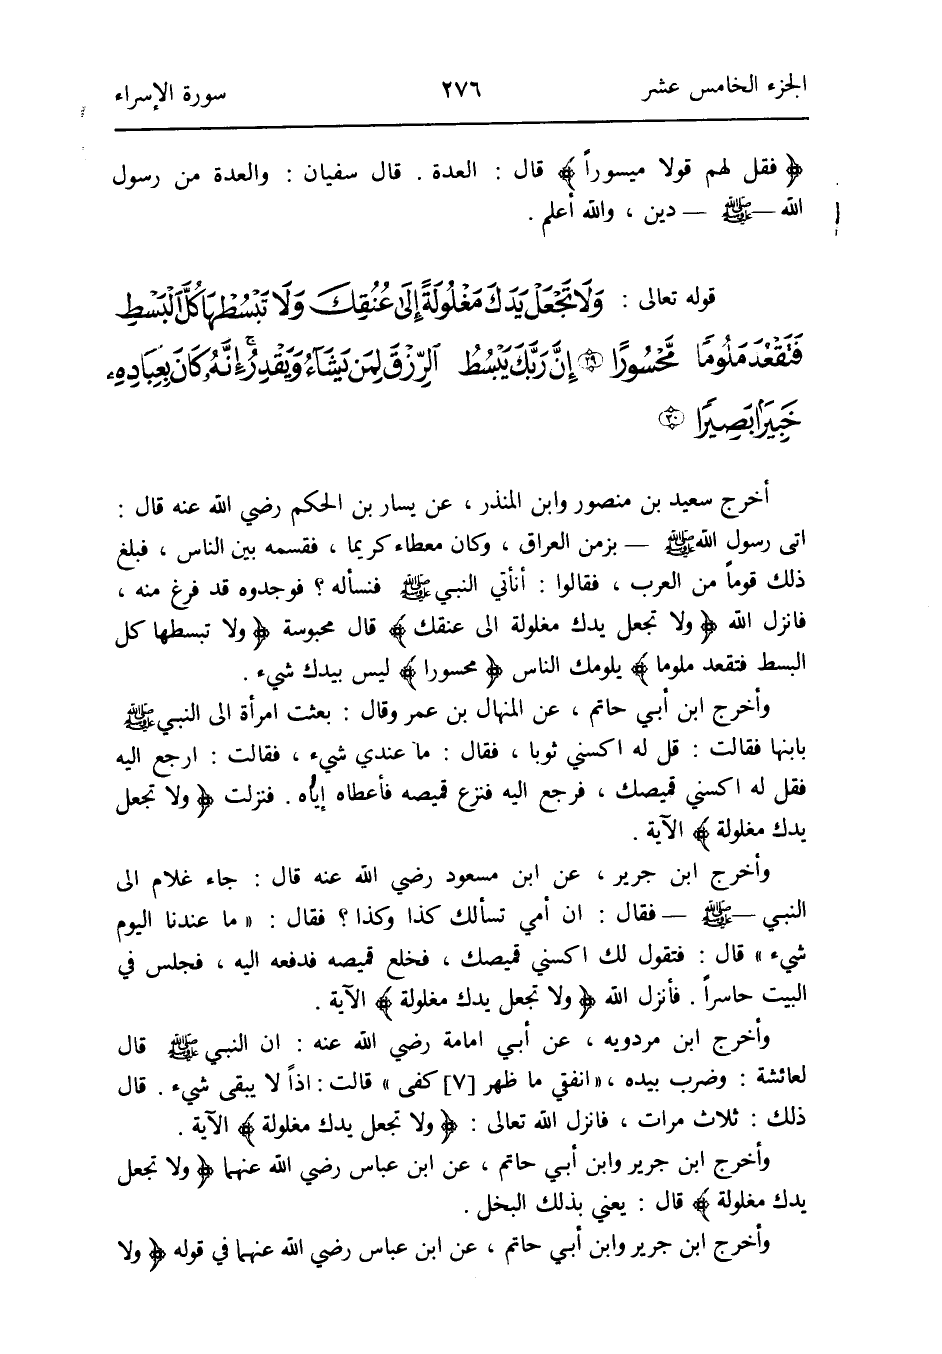 الجزء الخامس عشر ٢٧٦ سورة الإسراء
﴿ فقل لهم قولا ميسوراً ﴾ قال : العدة . قال سفيان : والعدة من رسول
الله — ﷺ — دين ، والله أعلم .
قوله تعالى : وَلَا تَجْعَلْ يَدَكَ مَغْلُولَةً إِلَىٰ عُنُقِكَ وَلَا تَبْسُطْهَا كُلَّ ٱلْبَسْطِ
فَتَقْعُدَ مَلُومًا مَّحْسُورًا ﴿٢٩﴾ إِنَّ رَبَّكَ يَبْسُطُ ٱلرِّزْقَ لِمَن يَشَآءُ وَيَقْدِرُ ۚ إِنَّهُۥ كَانَ بِعِبَادِهِۦ
خَبِيرًۢا بَصِيرًا ﴿٣٠﴾
أخرج سعيد بن منصور وابن المنذر ، عن يسار بن الحكم رضي الله عنه قال :
اتى رسول الله ﷺ — بزمن العراق ، وكان معطاء كريما ، فقسمه بين الناس ، فبلغ
ذلك قوماً من العرب ، فقالوا : أنأتي النبي ﷺ فنسأله ؟ فوجدوه قد فرغ منه ،
فانزل الله ﴿ ولا تجعل يدك مغلولة الى عنقك ﴾ قال محبوسة ﴿ ولا تبسطها كل
البسط فتقعد ملوما ﴾ يلومك الناس ﴿ محسورا ﴾ ليس بيدك شيء .
وأخرج ابن أبي حاتم ، عن المنهال بن عمر وقال : بعثت امرأة الى النبي ﷺ
بابنها فقالت : قل له اكسني ثوبا ، فقال : ما عندي شيء ، فقالت : ارجع اليه
فقل له اكسني قميصك ، فرجع اليه فنزع قميصه فأعطاه إياه . فنزلت ﴿ ولا تجعل
يدك مغلولة ﴾ الآية .
وأخرج ابن جرير ، عن ابن مسعود رضي الله عنه قال : جاء غلام الى
النبي — ﷺ — فقال : ان أمي تسألك كذا وكذا ؟ فقال : « ما عندنا اليوم
شيء » قال : فتقول لك اكسني قميصك ، فخلع قميصه فدفعه اليه ، فجلس في
البيت حاسراً . فأنزل الله ﴿ ولا تجعل يدك مغلولة ﴾ الآية .
وأخرج ابن مردويه ، عن أبي امامة رضي الله عنه : ان النبي ﷺ قال
لعائشة : وضرب بيده ، « انفقي ما ظهر [٧] كفى » قالت : اذاً لا يبقى شيء . قال
ذلك : ثلاث مرات ، فانزل الله تعالى : ﴿ ولا تجعل يدك مغلولة ﴾ الآية .
وأخرج ابن جرير وابن أبي حاتم ، عن ابن عباس رضي الله عنهما ﴿ ولا تجعل
يدك مغلولة ﴾ قال : يعني بذلك البخل .
وأخرج ابن جرير وابن أبي حاتم ، عن ابن عباس رضي الله عنهما في قوله ﴿ ولا